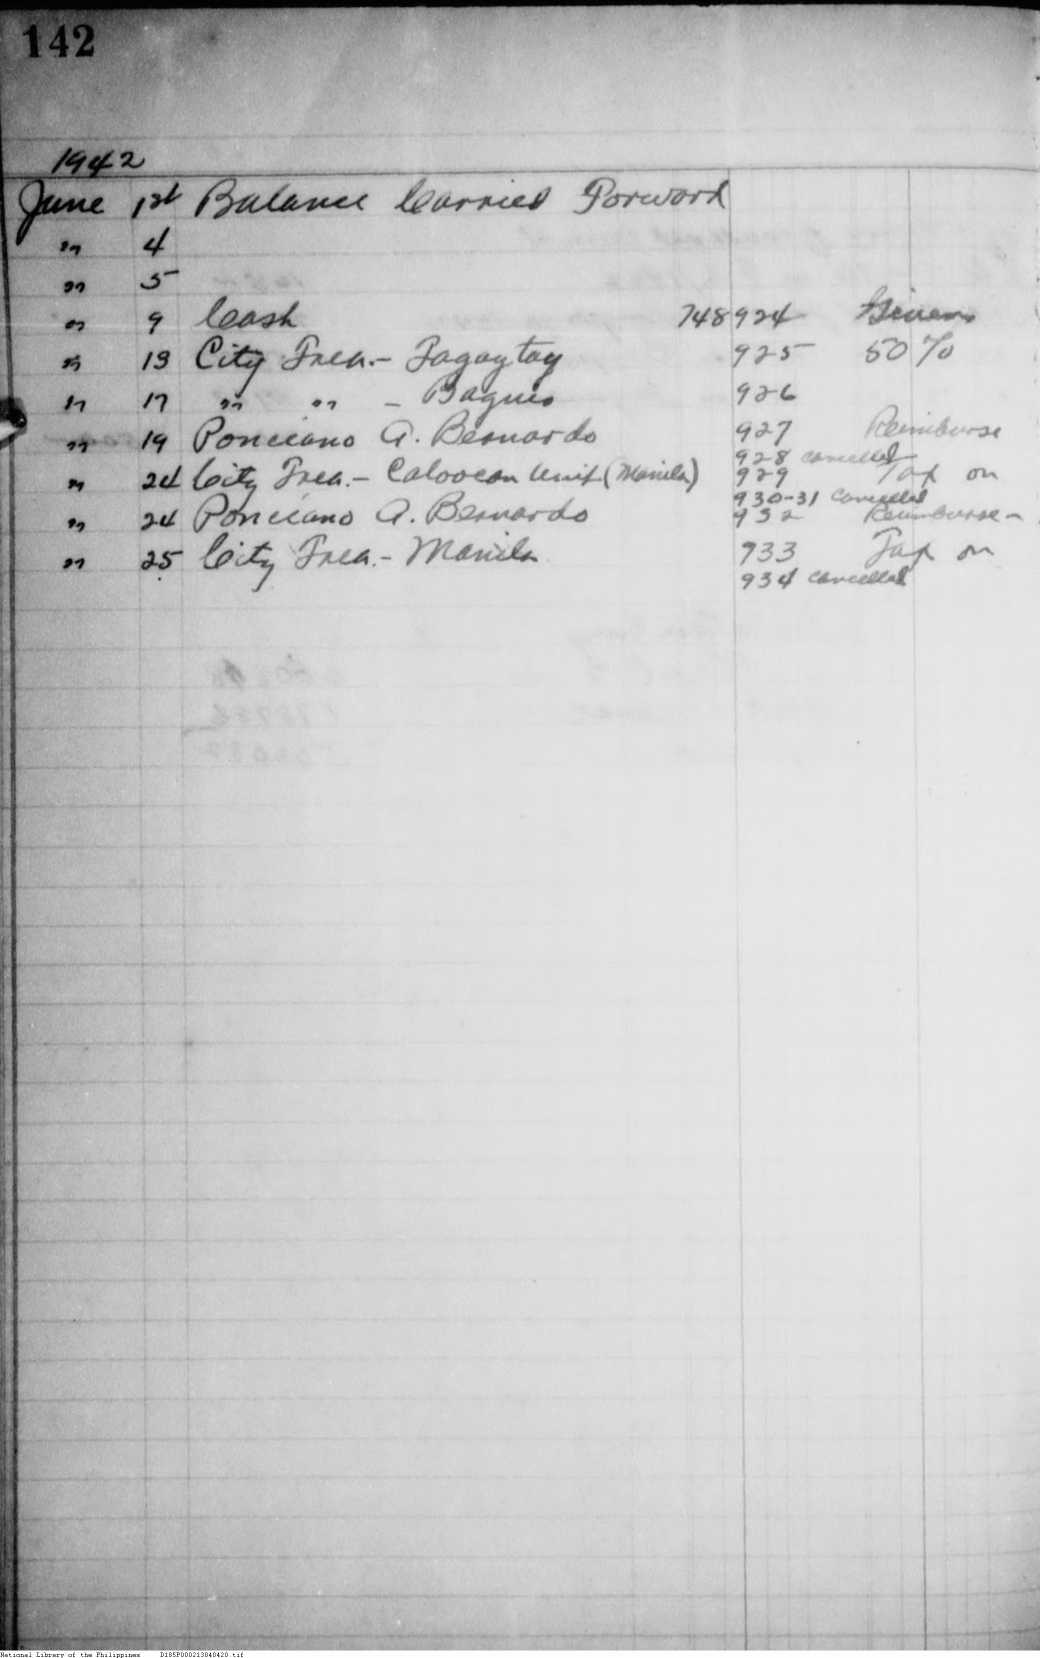 142
1942
June 1st Balance Carried Forward
" 4
" 5
" 9 Cash 748924 Givens
" 13 City Trea.- Tagaytay 925 50%
" 17 " " - Baguio 926
" 19 Ponciano A. Bernardo 927 Reimburse
928 cancelled
" 24 City Trea.- Caloocan Unit (Manila) 929 Tax on
930-31 Cancelled
" 24 Ponciano A. Bernardo 932 Reimburse-
" 25 City Trea.- Manila 933 Tax on
934 cancelled
National Library of the Philippines D185P000213040420.tif